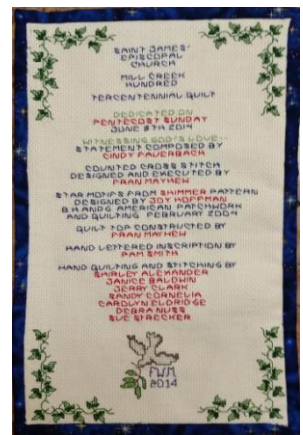 SAINT JAMES'
EPISCOPAL
CHURCH
MILL CREEK
HUNDRED
TERCENTENNIAL QUILT
DEDICATED ON
PENTECOST SUNDAY
JUNE 8TH 2014
WITNESSING GOD'S LOVE--
STATEMENT COMPOSED BY
CINDY PAUERBACH
COUNTED CROSS STITCH
DESIGNED AND EXECUTED BY
FRAN MAYHEW
STAR MOTIFS FROM SHIMMER PATTERN
DESIGNED BY JOY HOFFMAN
AMERICAN PATCHWORK
AND QUILTING FEBRUARY 2004
QUILT TOP CONSTRUCTED BY
FRAN MAYHEW
HAND LETTERED INSCRIPTION BY
PAM SMITH
HAND QUILTING AND STITCHING BY
SHIRLEY ALEXANDER
JANICE BALDWIN
JERRY CLARK
SANDY CORNELIA
CAROLYN ELDRIDGE
DEBRA NUSS
SUE STRECKER
FWM
2014